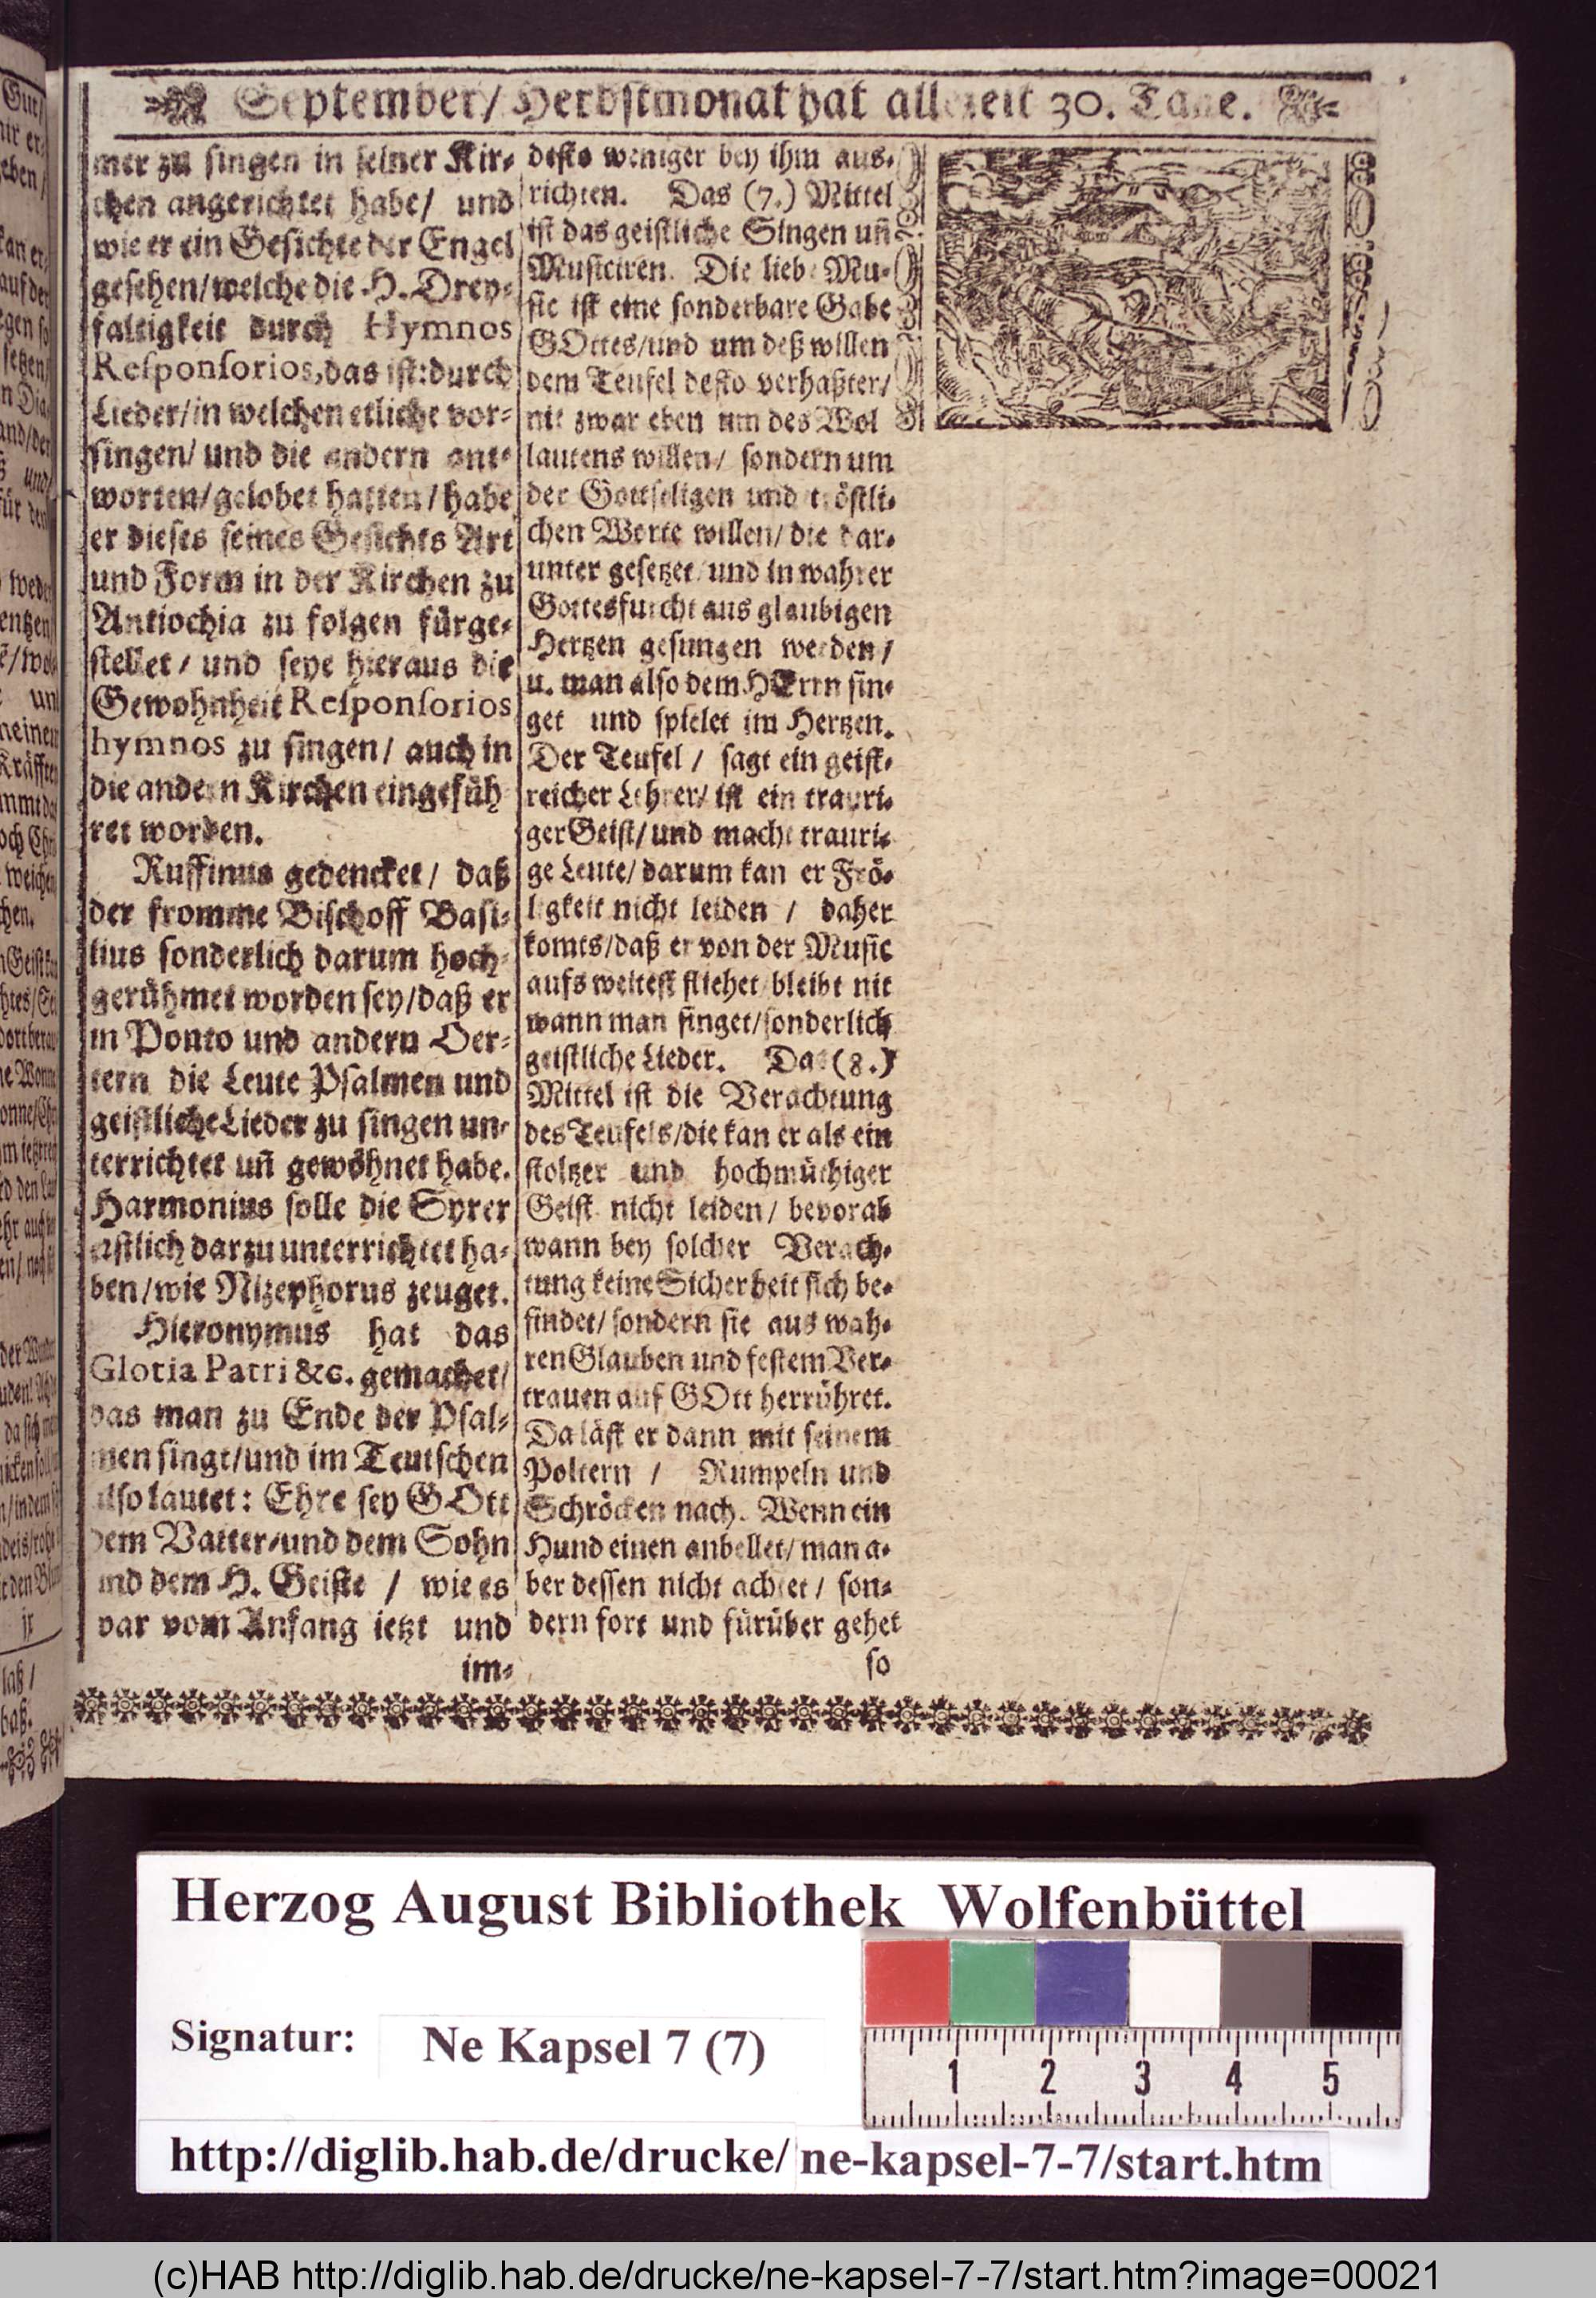 September/ Herbstmonat hat allezeit 30. Tage.
mer zu singen in seiner Kir-
chen angerichtet habe/ und
wie er ein Gesichte der Engel
gesehen/welche die H. Drey-
faltigkeit durch Hymnos
Responsorios, das ist: durch
Lieder/in welchen etliche vor-
singen/ und die andern ant-
worten/gelobet hatten/habe
er dieses seines Gesichts Art
und Form in der Kirchen zu
Antiochia zu folgen fürge-
stellet/ und seye hieraus die
Gewohnheit Responsorios
hymnos zu singen/ auch in
die andern Kirchen eingefüh
ret worden.
Ruffinus gedencket/ daß
der fromme Bischoff Basi-
lius sonderlich darum hoch-
gerühmet worden sey/daß er
in Ponto und andern Oer-
tern die Leute Psalmen und
geistliche Lieder zu singen un-
terrichtet uñ gewöhnet habe.
Harmonius solle die Syrer
astlich darzu unterrichtet ha-
ben/wie Nizephorus zeuget.
Hieronymus hat das
Gloria Patri &c. gemachet/
das man zu Ende der Psal-
men singt/und im Teutschen
also lautet: Ehre sey GOtt
dem Vatter/und dem Sohn
und dem H. Geiste / wie es
war vom Anfang ietzt und
im-
desto weniger bey ihm aus-
richten. Das (7.) Mittel
ist das geistliche Singen uñ
Musiciren. Die liebe Mu-
sic ist eine sonderbare Gabe
GOttes/und um deß willen
dem Teufel desto verhaßter/
nit zwar eben um des Wol
lautens willen/ sondern um
der Gottseligen und tröstli-
chen Worte willen/ die dar-
unter gesetzet/und in wahrer
Gottesfurcht aus glaubigen
Hertzen gesungen werden/
u. man also dem HErrn sin-
get und spielet im Hertzen.
Der Teufel / sagt ein geist-
reicher Lehrer/ ist ein trauri-
ger Geist/und macht trauri-
ge Leute/darum kan er Frö-
ligkeit nicht leiden / daher
komts/daß er von der Music
aufs weitest fliehet/bleibt nit
wann man singet/sonderlich
geistliche Lieder. Das (8.)
Mittel ist die Verachtung
des Teufels/die kan er als ein
stoltzer und hochmüthiger
Geist nicht leiden/ bevorab
wann bey solcher Verach-
tung keine Sicherheit sich be-
findet/sondern sie aus wah-
ren Glauben und festem Ver-
trauen auf GOtt herrühret.
Da läst er dann mit seinem
Poltern / Rumpeln und
Schröcken nach. Wenn ein
Hund einen anbellet/ man a-
ber dessen nicht achtet/ son-
dern fort und fürüber gehet
so
Herzog August Bibliothek Wolfenbüttel
Signatur: Ne Kapsel 7 (7)
1 2 3 4 5
http://diglib.hab.de/drucke/ne-kapsel-7-7/start.htm
(c)HAB http://diglib.hab.de/drucke/ne-kapsel-7-7/start.htm?image=00021